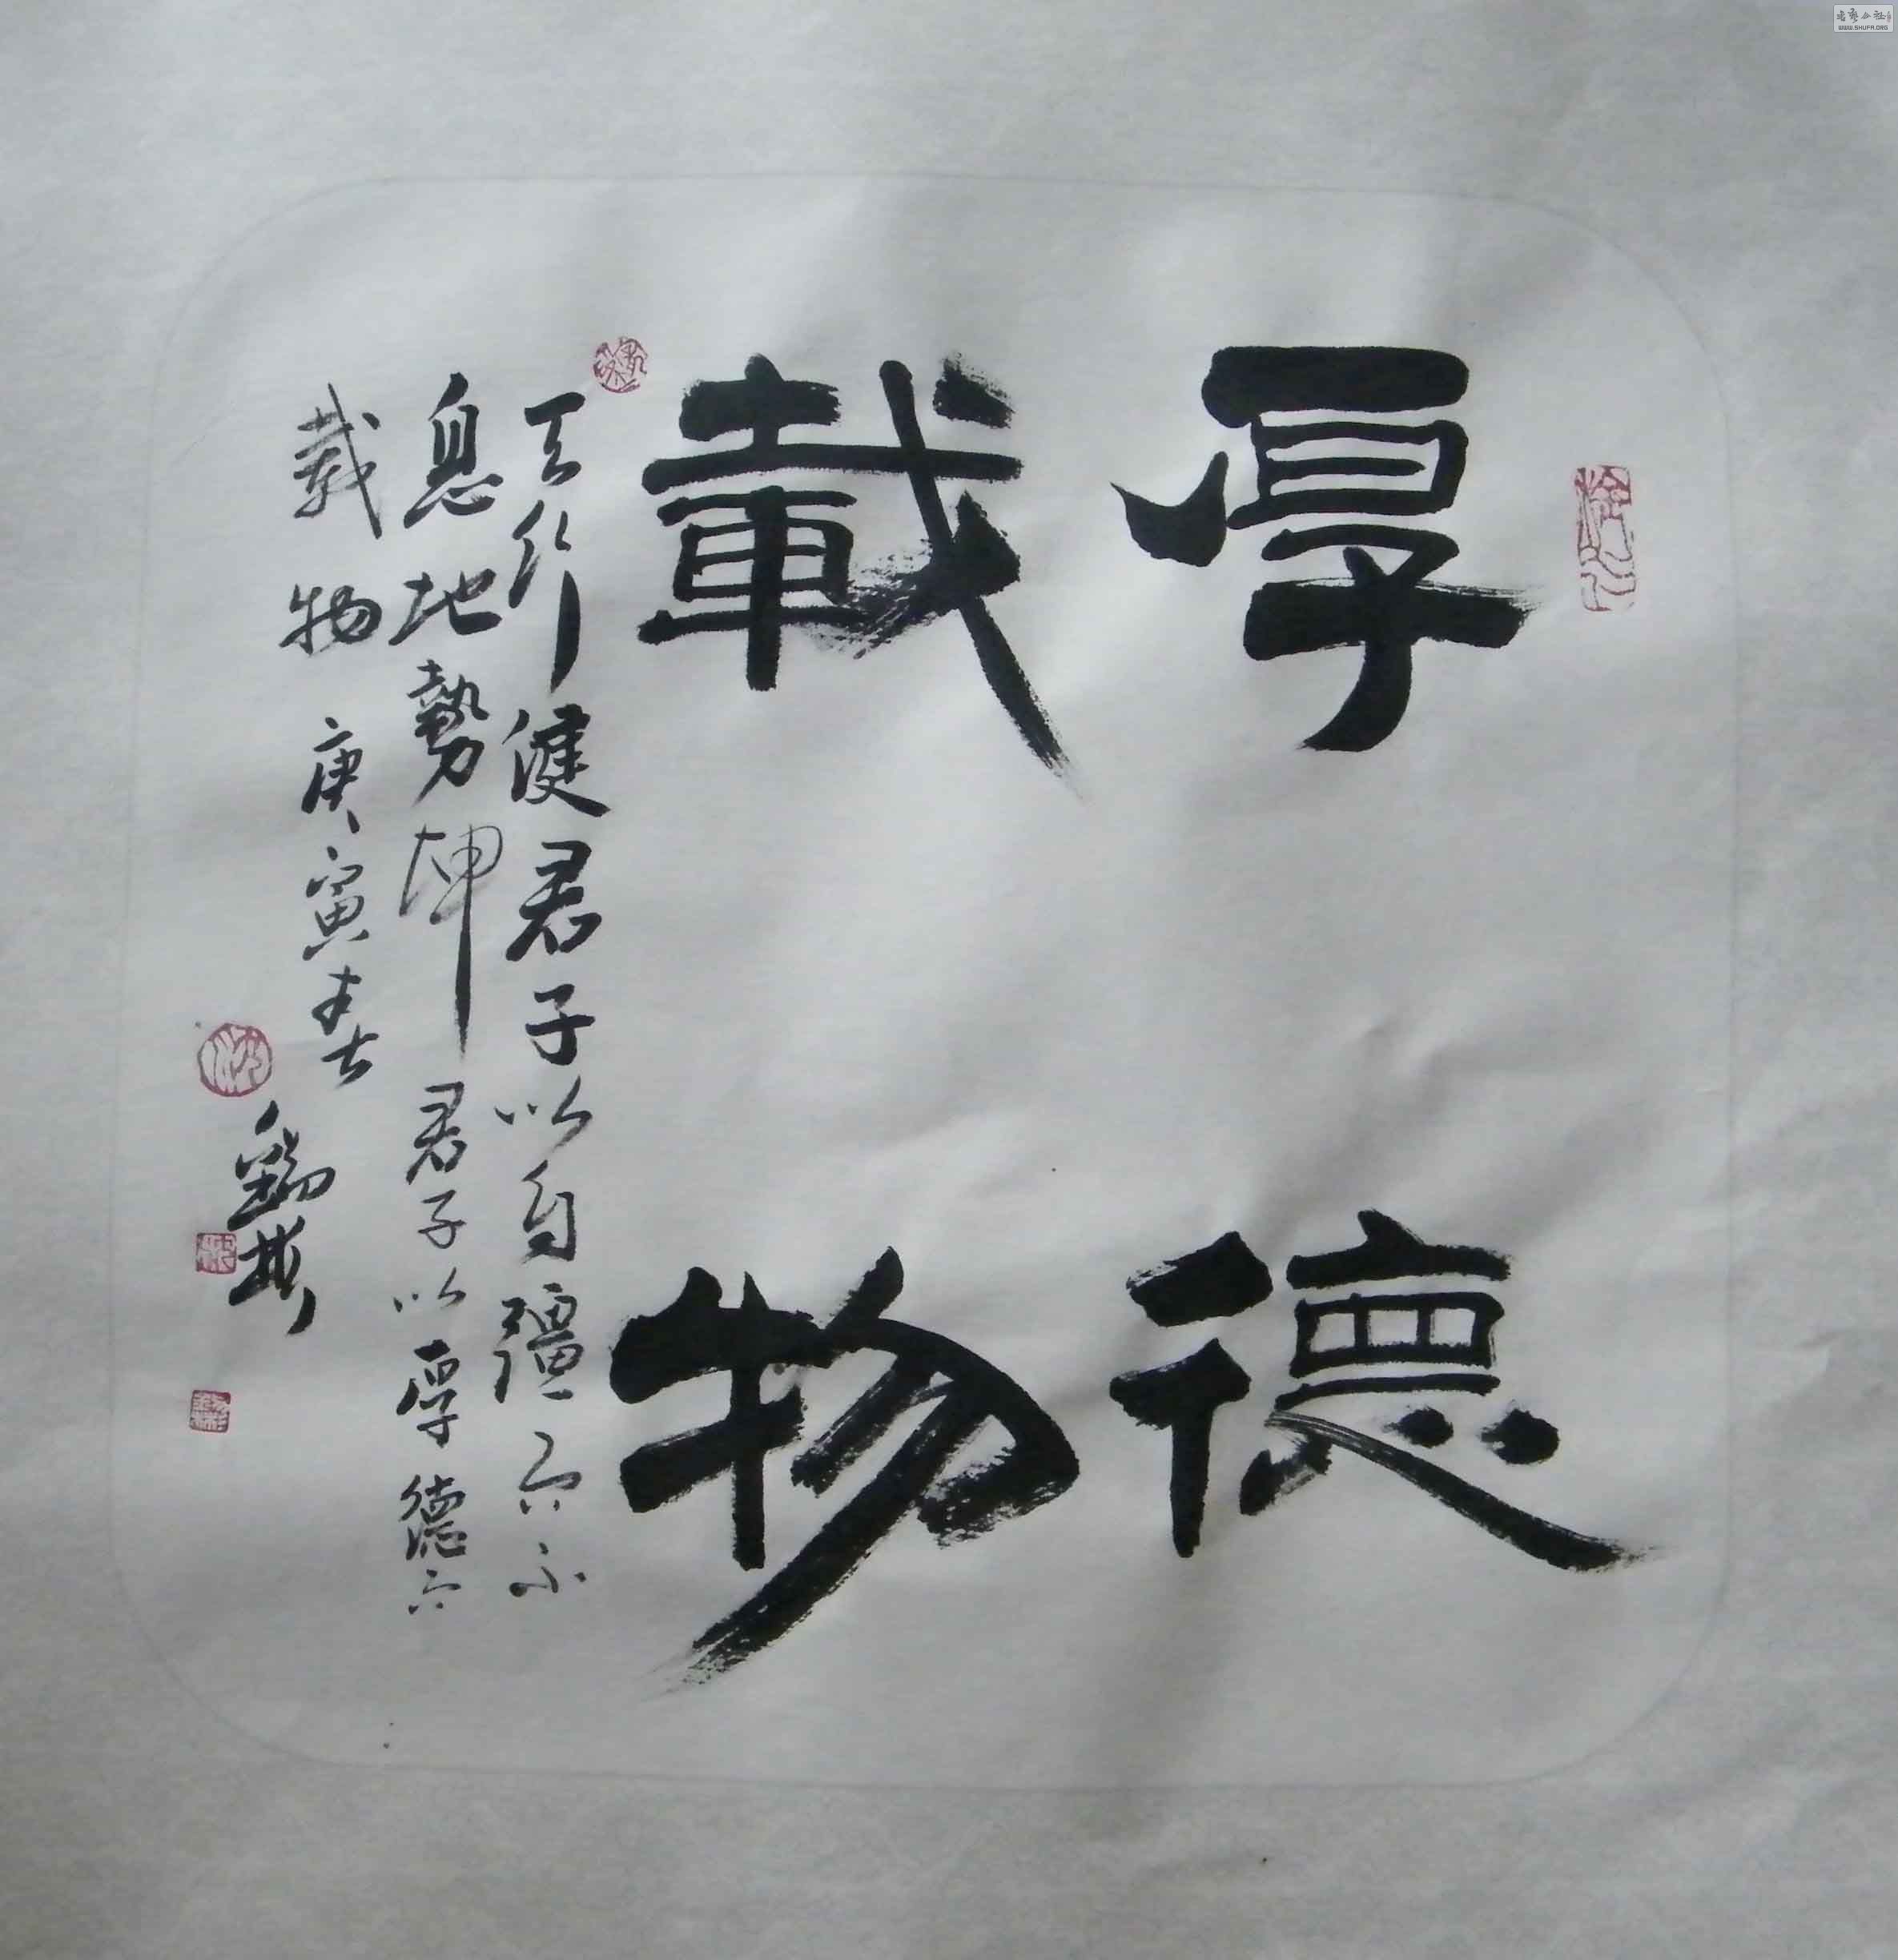 厚德
載物
天行健君子以自彊不
息地勢坤君子以厚德
載物 庚寅春
WWW.SHUFA.ORG